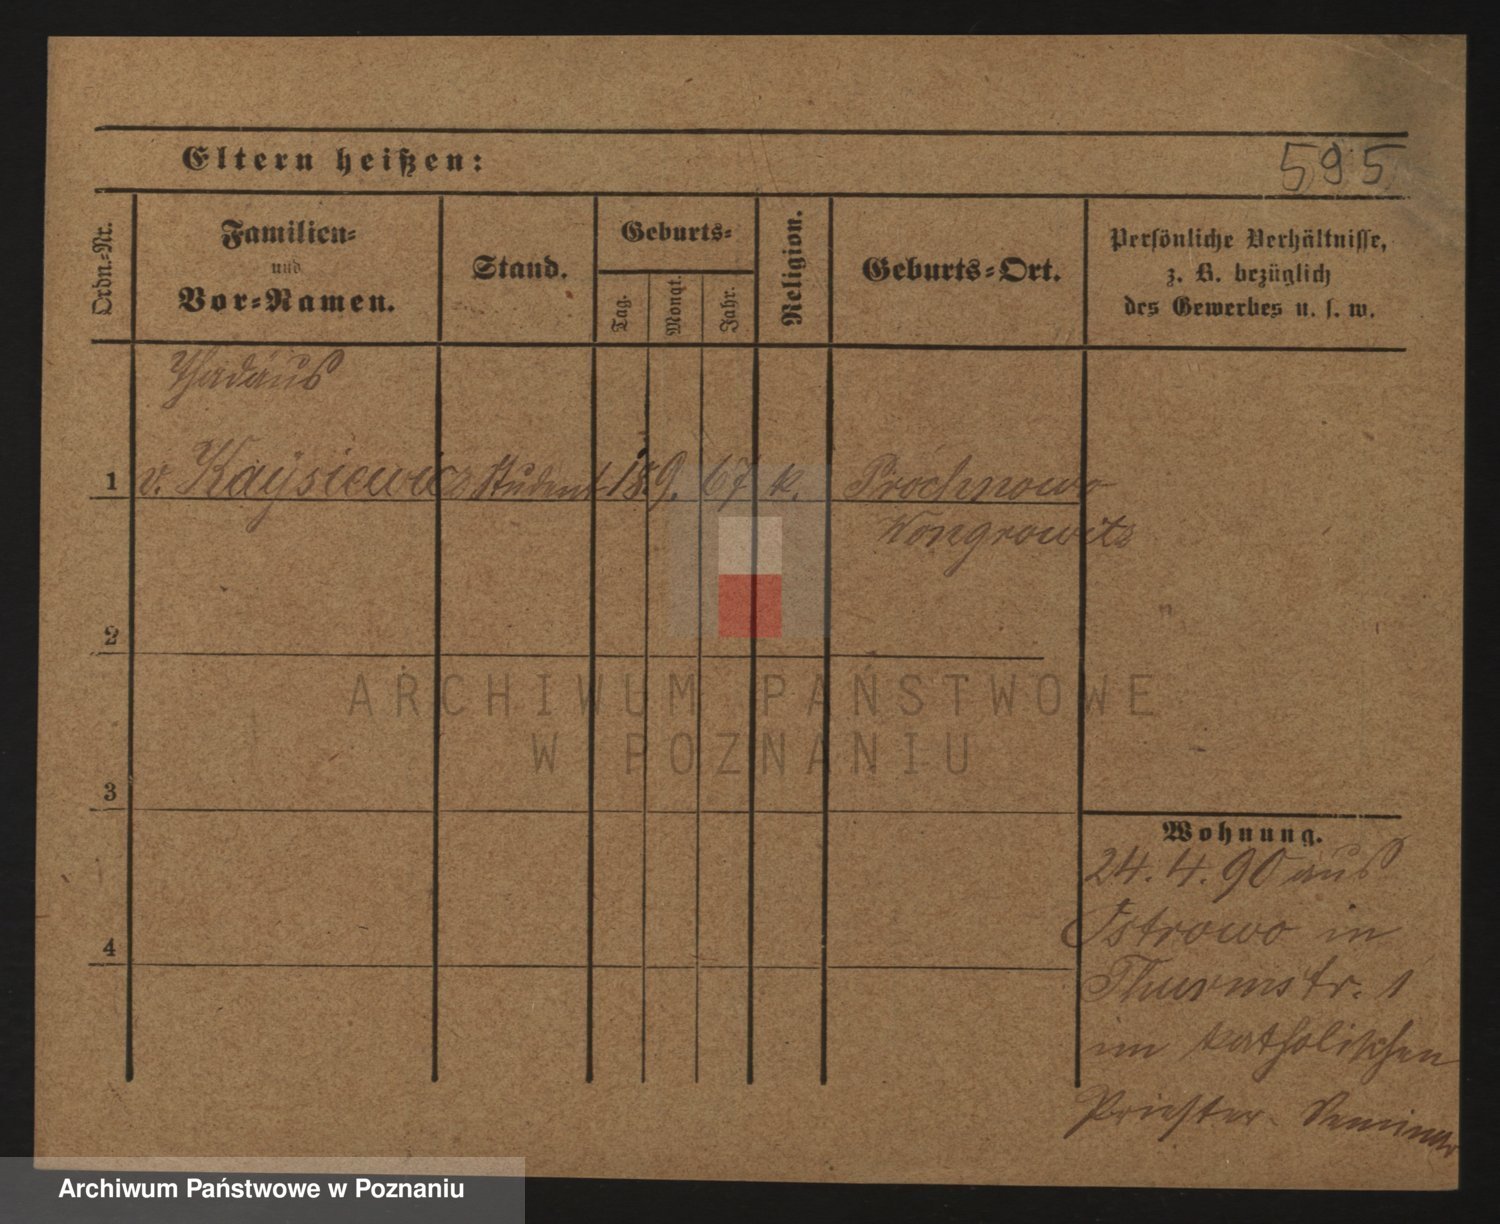 Eltern heißen:
595
Ordn.-Nr.
Familien-
und
Vor-Namen.
Stand.
Geburts-
Tag.
Monat.
Jahr.
Religion.
Geburts-Ort.
Persönliche Verhältnisse,
z. B. bezüglich
des Gewerbes u. s. w.
Thadäus
1 v. Kaysiewicz Student 18. 9. 67 k. Prochnowo
Wongrowitz
2
3
4
Wohnung.
24. 4. 90 aus
Ostrowo in
Thurmstr. 1
im katholischen
Priester-Seminar
ARCHIWUM PAŃSTWOWE
W POZNANIU
Archiwum Państwowe w Poznaniu